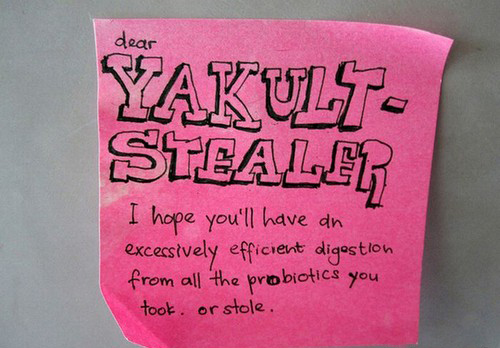 dear
YAKULT-
STEALER
I hope you'll have an
excessively efficient digestion
from all the probiotics you
took. or stole.